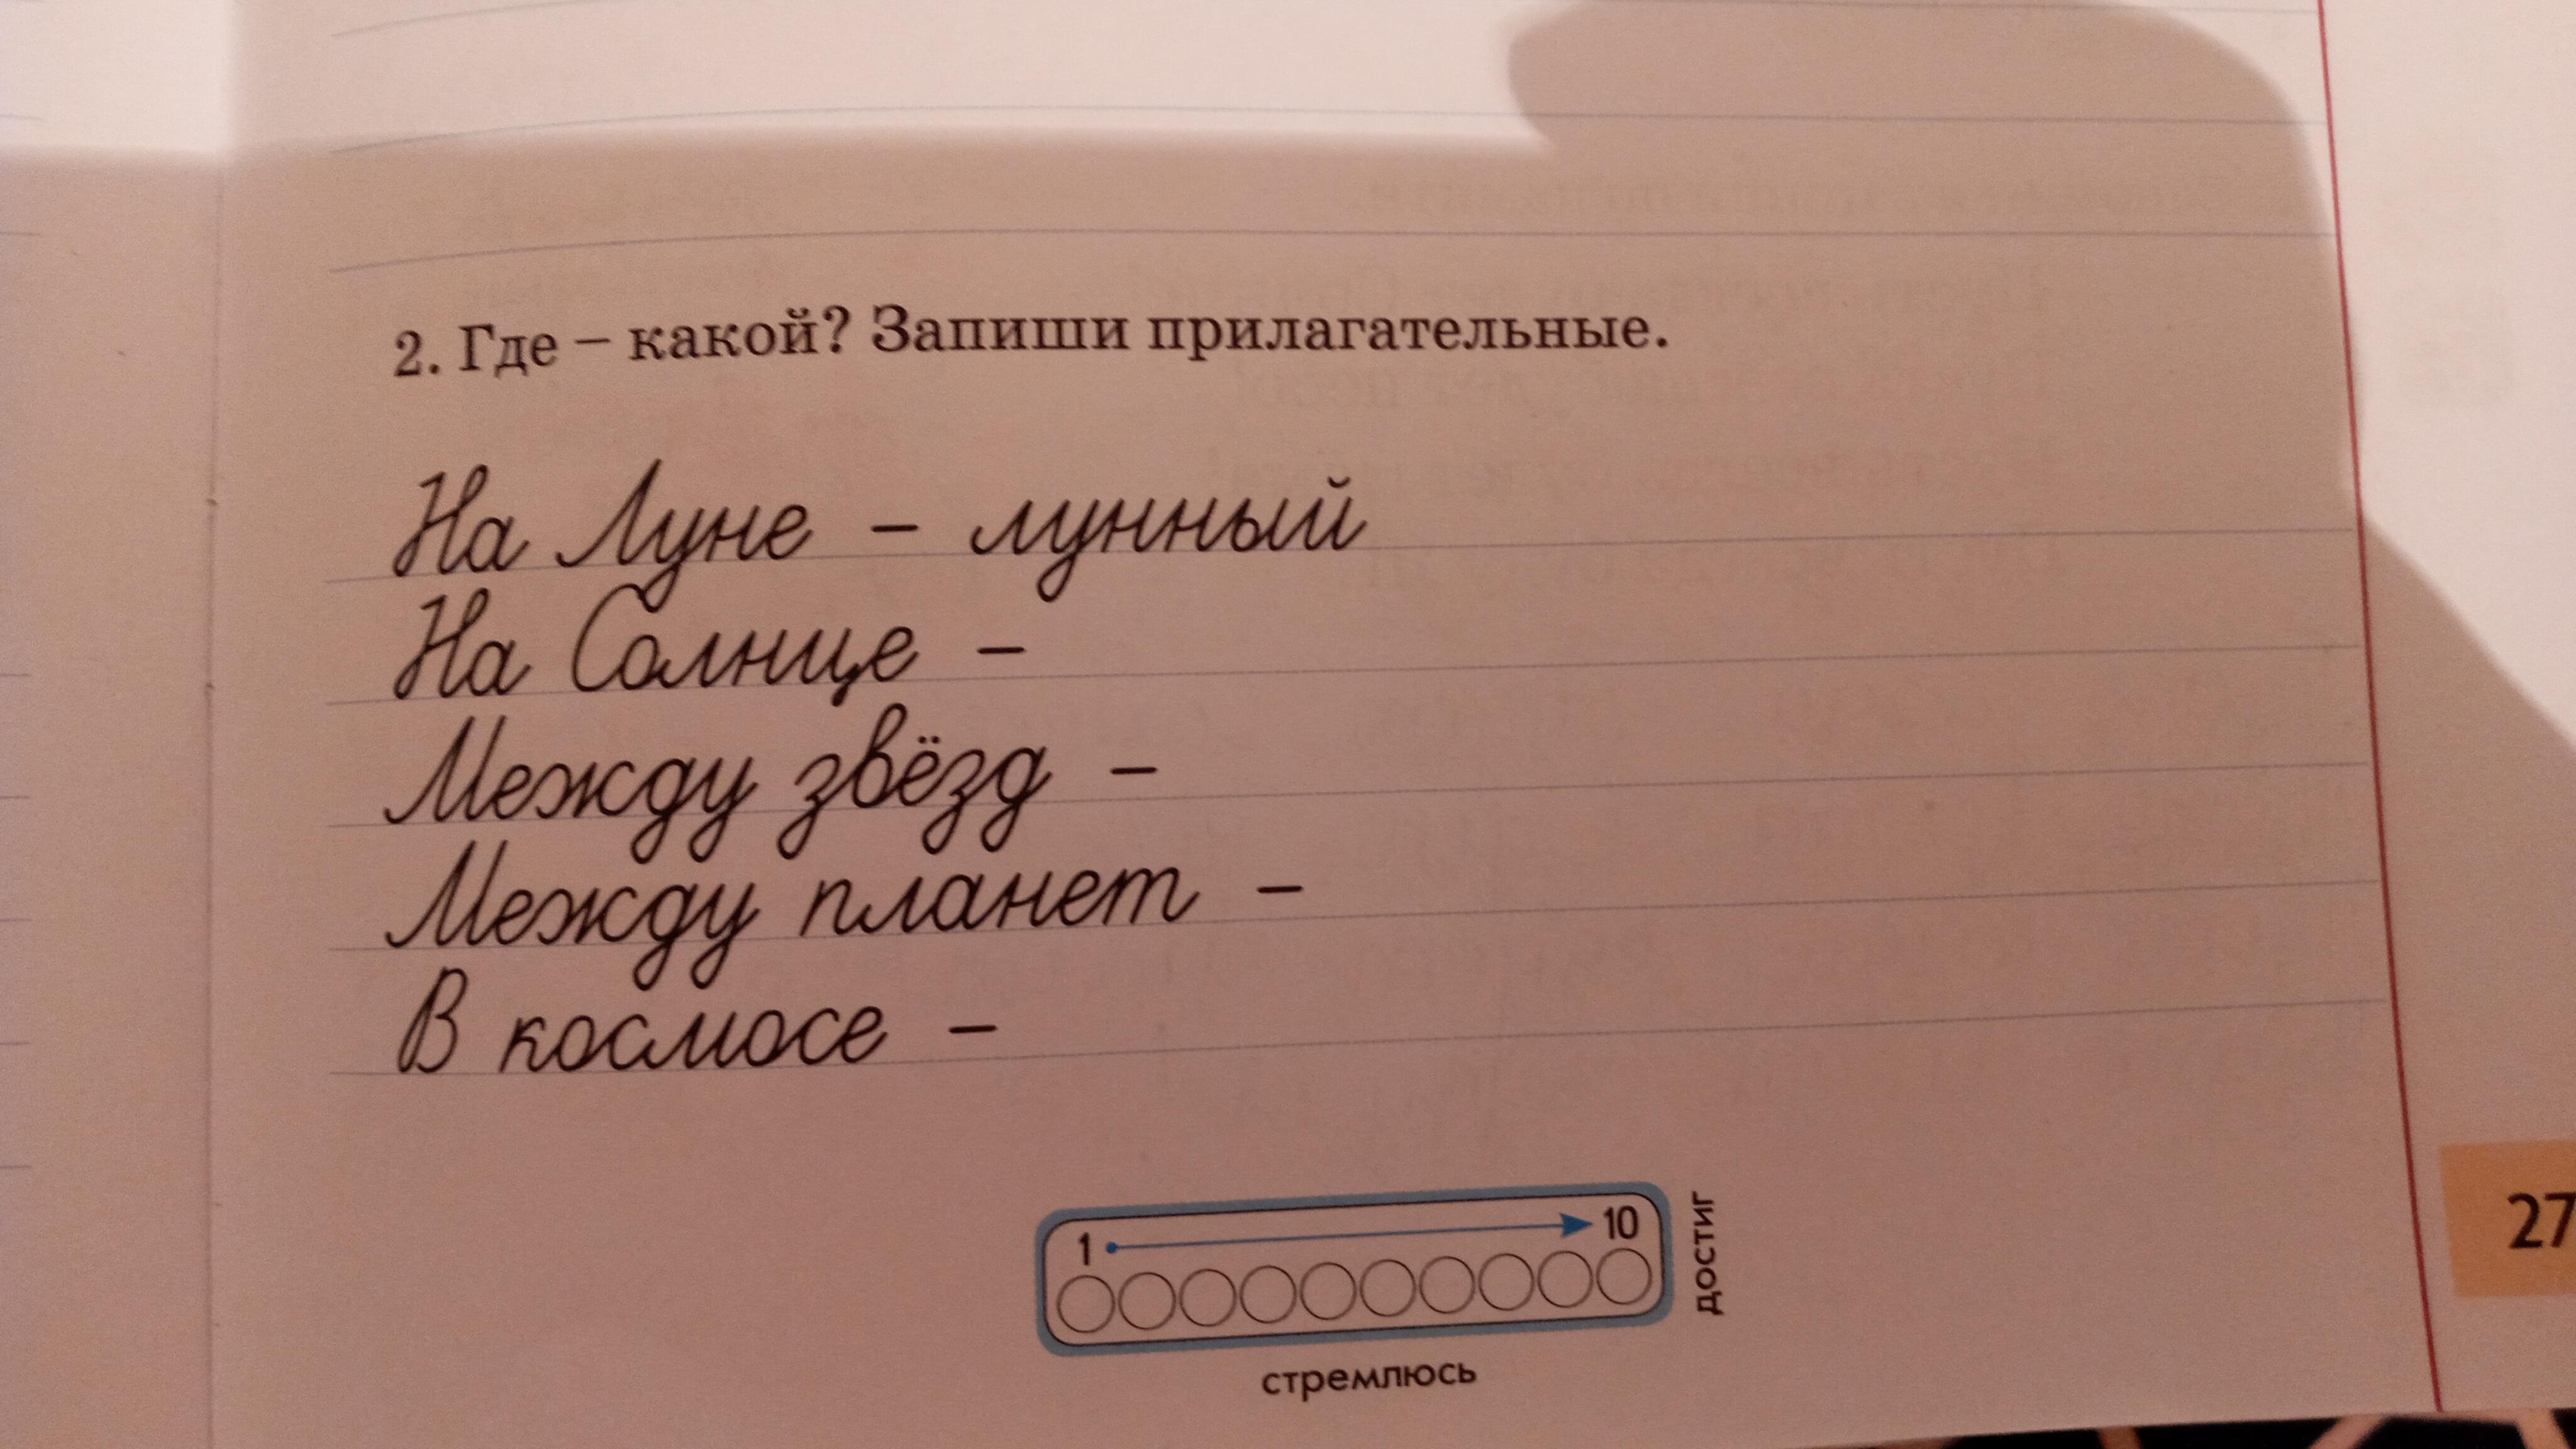 2. Где – какой? Запиши прилагательные.
На Луне – лунный
На Солнце –
Между звёзд –
Между планет –
В космосе –
1 10
достиг
стремлюсь
27